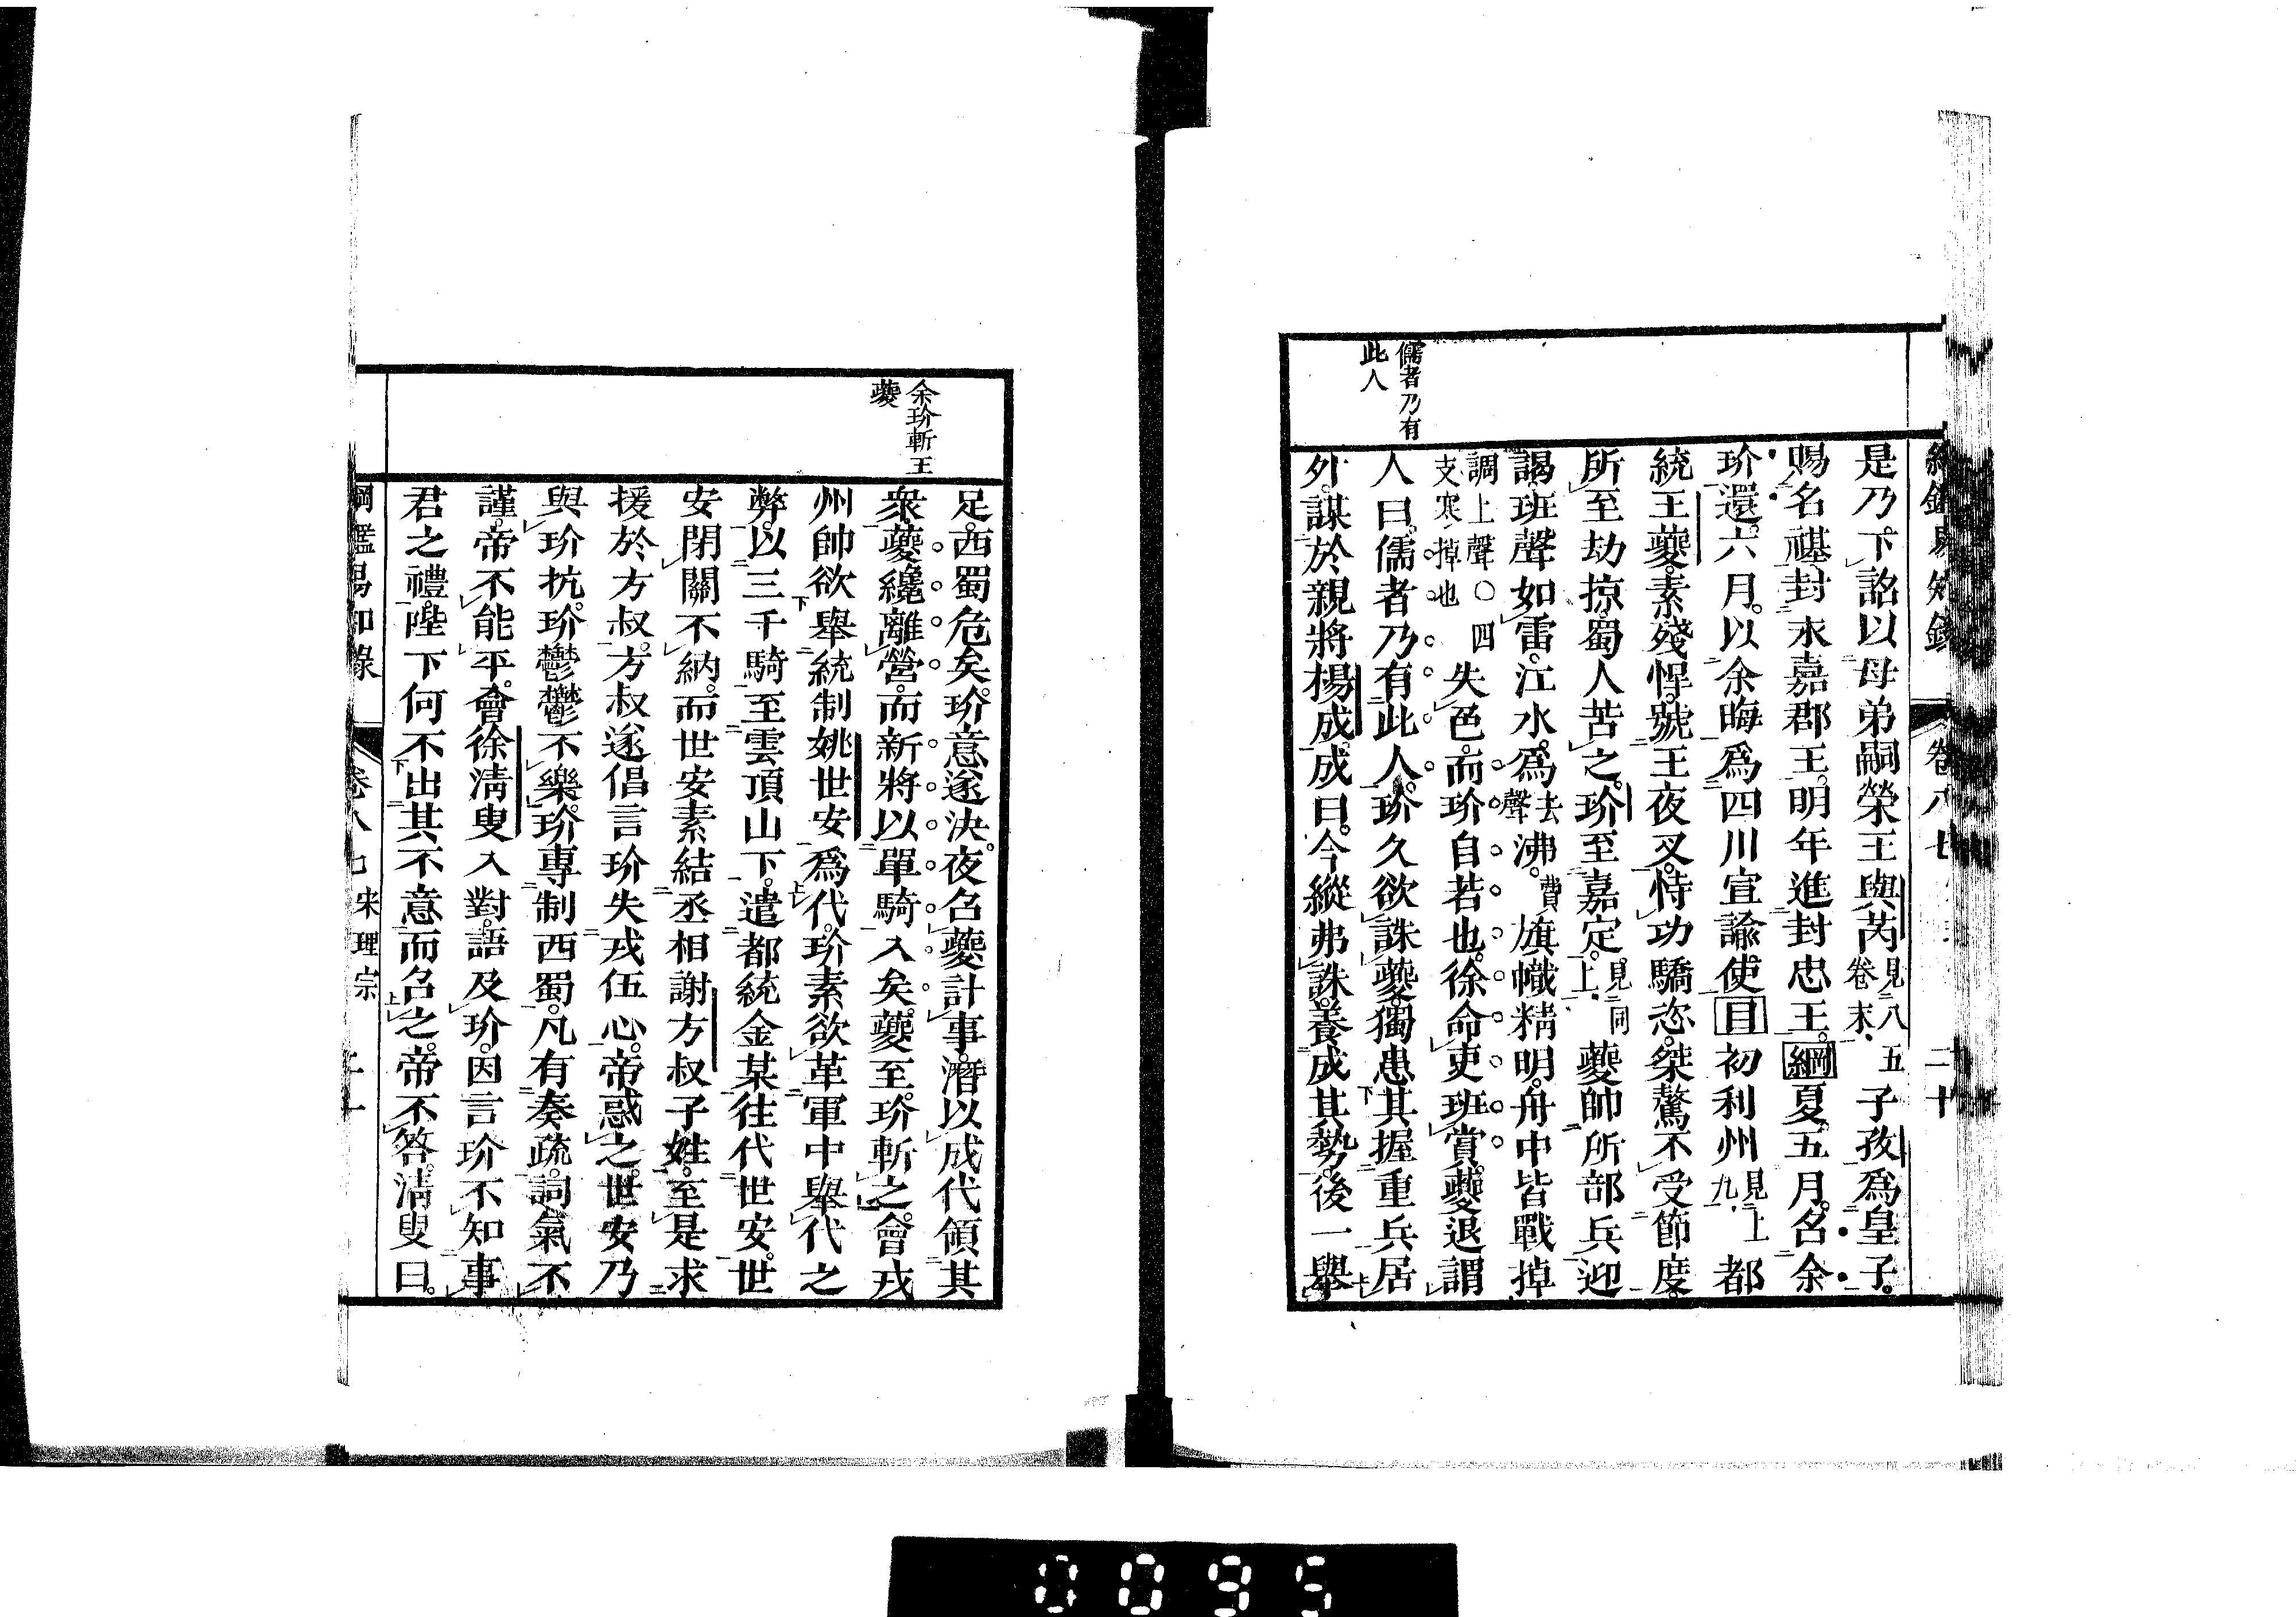 儒者乃有
此人
是乃下詔以母弟嗣榮王與芮見八五卷末子孜爲皇子
賜名禥封永嘉郡王明年進封忠王綱夏五月召余
玠還六月以余晦爲四川宣諭使目初利州見上九都
統王夔素殘悍號王夜叉恃功驕恣桀驁不受節度
所至劫掠蜀人苦之玠至嘉定見同上夔帥所部兵迎
謁班聲如雷江水爲去聲沸費旗幟精明舟中皆戰掉
調上聲〇四支寒掉也失色而玠自若也徐命吏班賞夔退謂
人曰儒者乃有此人玠久欲誅夔獨患其握重兵居
外謀於親將楊成成曰今縱弗誅養成其勢後一舉
余玠斬王
夔
足西蜀危矣玠意遂決夜召夔計事潛以成代領其
衆夔纔離營而新將以單騎入矣夔至玠斬之會戎
州帥欲舉統制姚世安爲代玠素欲革軍中舉代之
弊以三千騎至雲頂山下遣都統金某往代世安世
安閉關不納而世安素結丞相謝方叔子姪至是求
援於方叔方叔遂倡言玠失戎伍心帝惑之世安乃
與玠抗玠鬱鬱不樂玠專制西蜀凡有奏疏詞氣不
謹帝不能平會徐清叟入對語及玠因言玠不知事
君之禮陛下何不出其不意而召之帝不答清叟曰
綱鑑易知錄 卷八七 宋理宗
0095